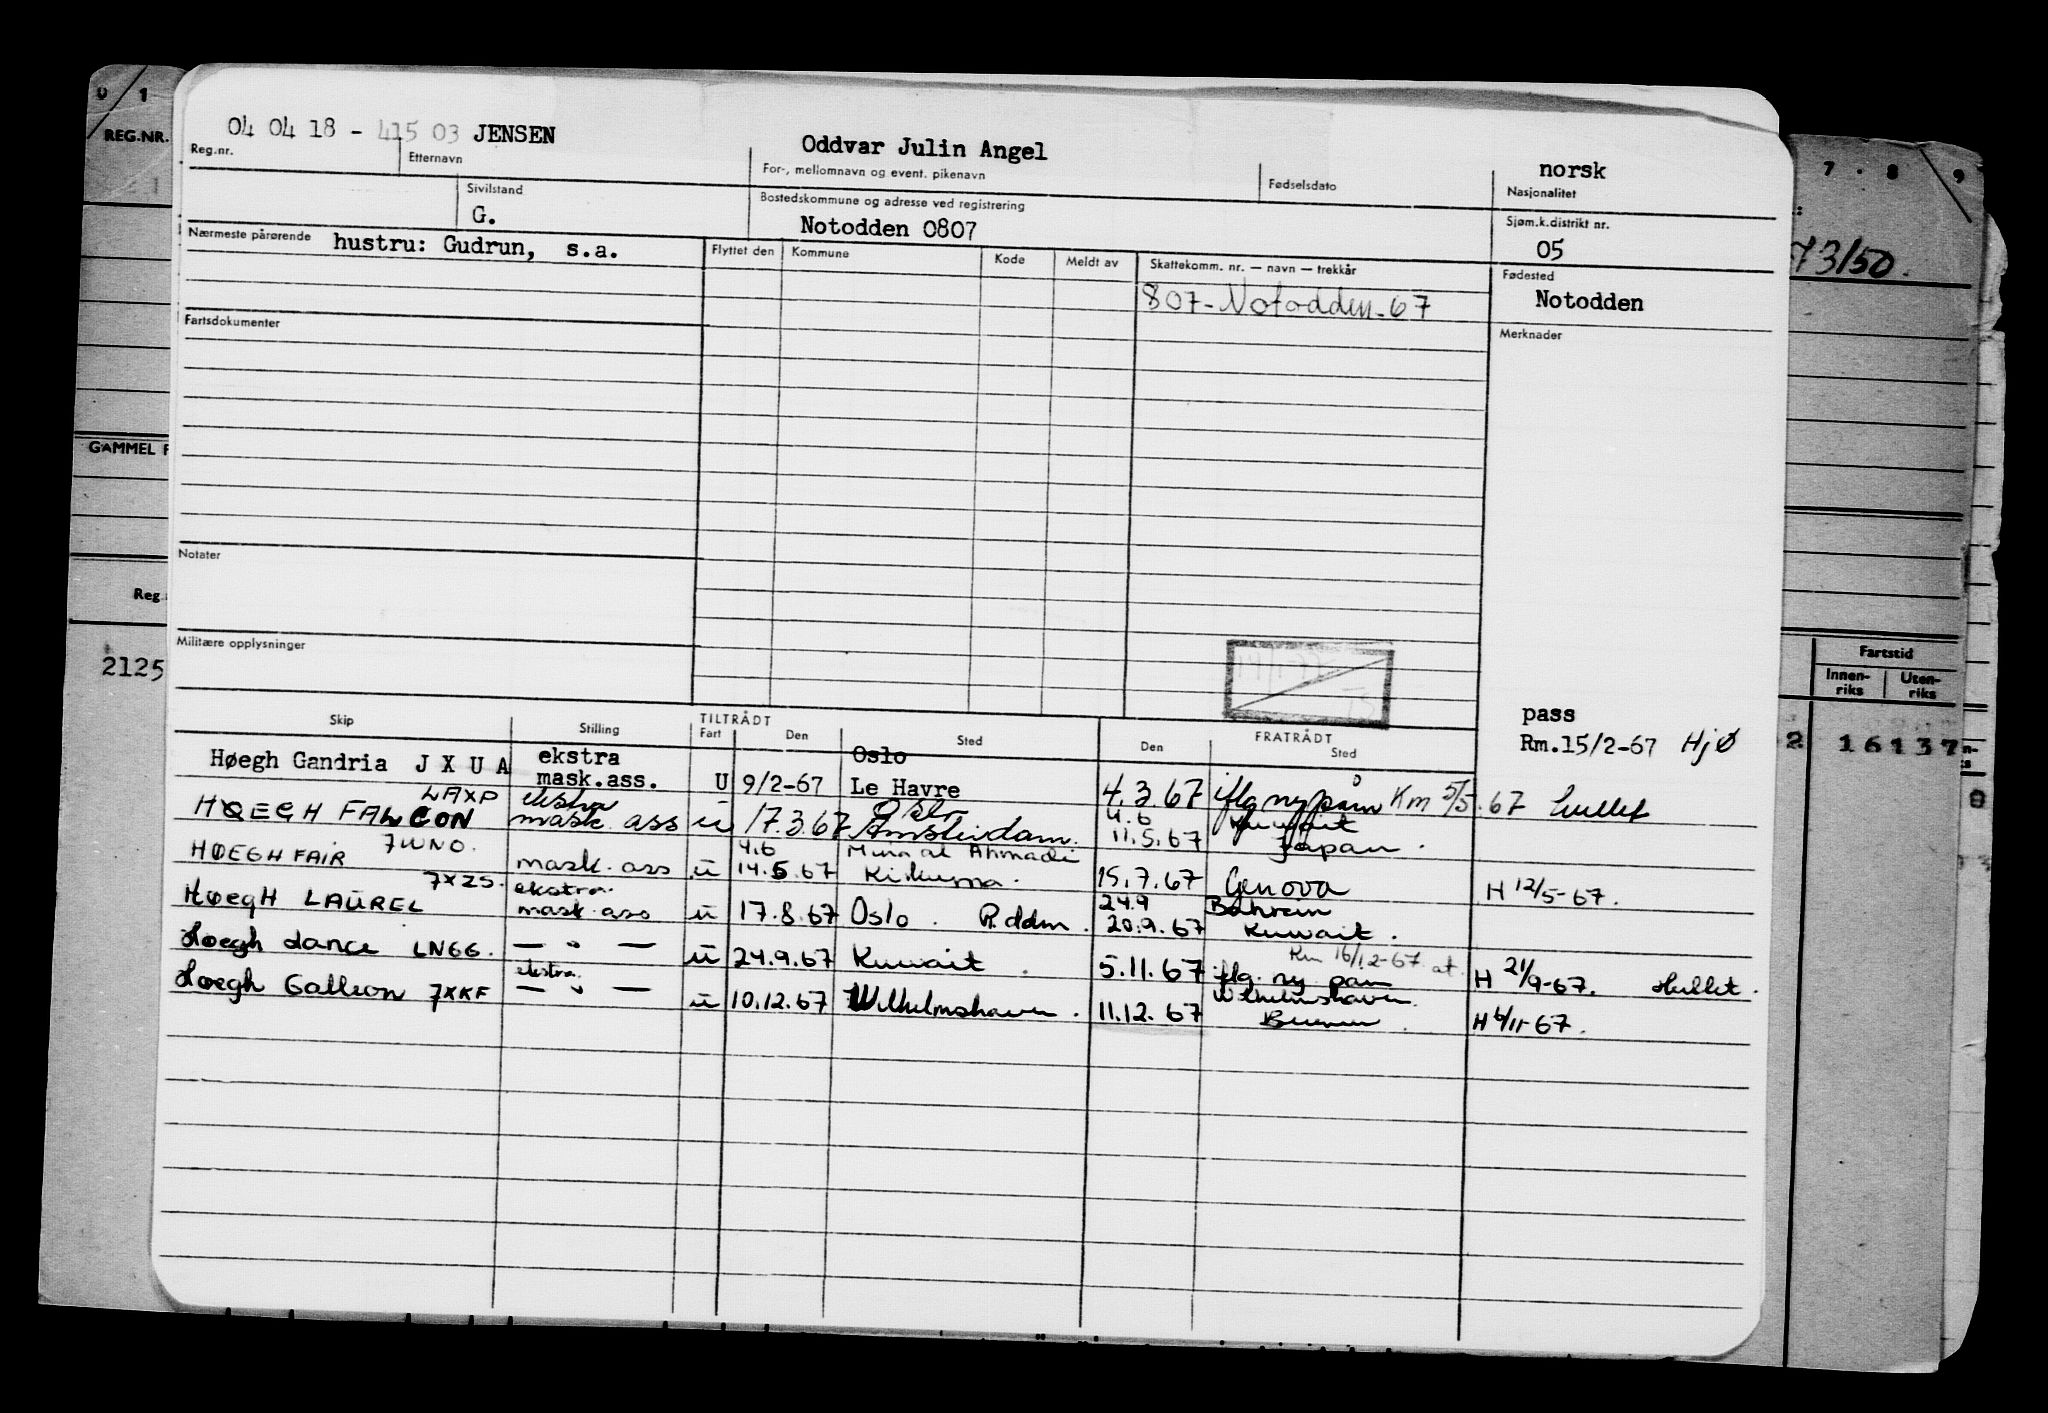 0 / 1
REG.NR.
04 04 18 - 415 03 JENSEN
Oddvar Julin Angel
norsk
Reg.nr.
Etternavn
For-, mellomnavn og event. pikenavn
Fødselsdato
Nasjonalitet
7 . 8 9
Sivilstand
Bostedskommune og adresse ved registrering
Sjøm.k.distrikt nr.
G.
Notodden 0807
05
Nærmeste pårørende hustru: Gudrun, s.a.
Flyttet den Kommune Kode Meldt av Skattekomm. nr. — navn — trekkår
Fødested
73/50.
807-Notodden-67
Notodden
Fartsdokumenter
Merknader
GAMMEL F
Notater
Reg.
Militære opplysninger
2125
Fartstid
Innen-riks Uten-riks
pass
Rm.15/2-67 HjØ
2 16137
Skip Stilling TILTRÅDT FRATRÅDT
Fart Den Sted Den Sted
Høegh Gandria J X U A ekstra mask.ass. U 9/2-67 Oslo Le Havre 4.3.67 iflg ny påm Km 5/5.67 hullet
HØEGH FALCON LAXP ekstra mask. ass u 17.3.67 Oslo Amsterdam. 4.6 11.5.67 Kuwait Japan.
HØEGH FAIR 7WNO. mask. ass u 4.6 14.5.67 Mina al Ahmadi 15.7.67 Genova H 12/5-67.
HØEGH LAUREL 7XZS. ekstra. mask. ass u 17.8.67 Oslo. R.ddm. 24.9 20.9.67 Bahrein Kuwait.
Høegh Lance LNGG. — " — u 24.9.67 Kuwait. 5.11.67 iflg. ny påm Rm 16/12-67. at. H 21/9-67. Hullet.
Høegh Galleon 7XKF ekstra. — " — u 10.12.67 Wilhelmshaven. 11.12.67 Wilhelmshaven. H 6/11-67.